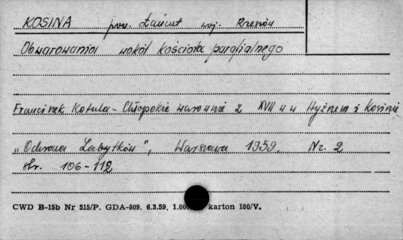 KOSINA pow. Łańcut woj. Rzeszów
Obwarowania wokół kościoła parafialnego
Franciszek Kotula - Chłopskie warownie z XVII w w Hyżnem i Kosinie
"Ochrona Zabytków", Warszawa 1959. Nr. 2
str. 106-112
CWD B-15b Nr 515/P. GDA-809. 6.3.59. 1.00 karton 180/V.